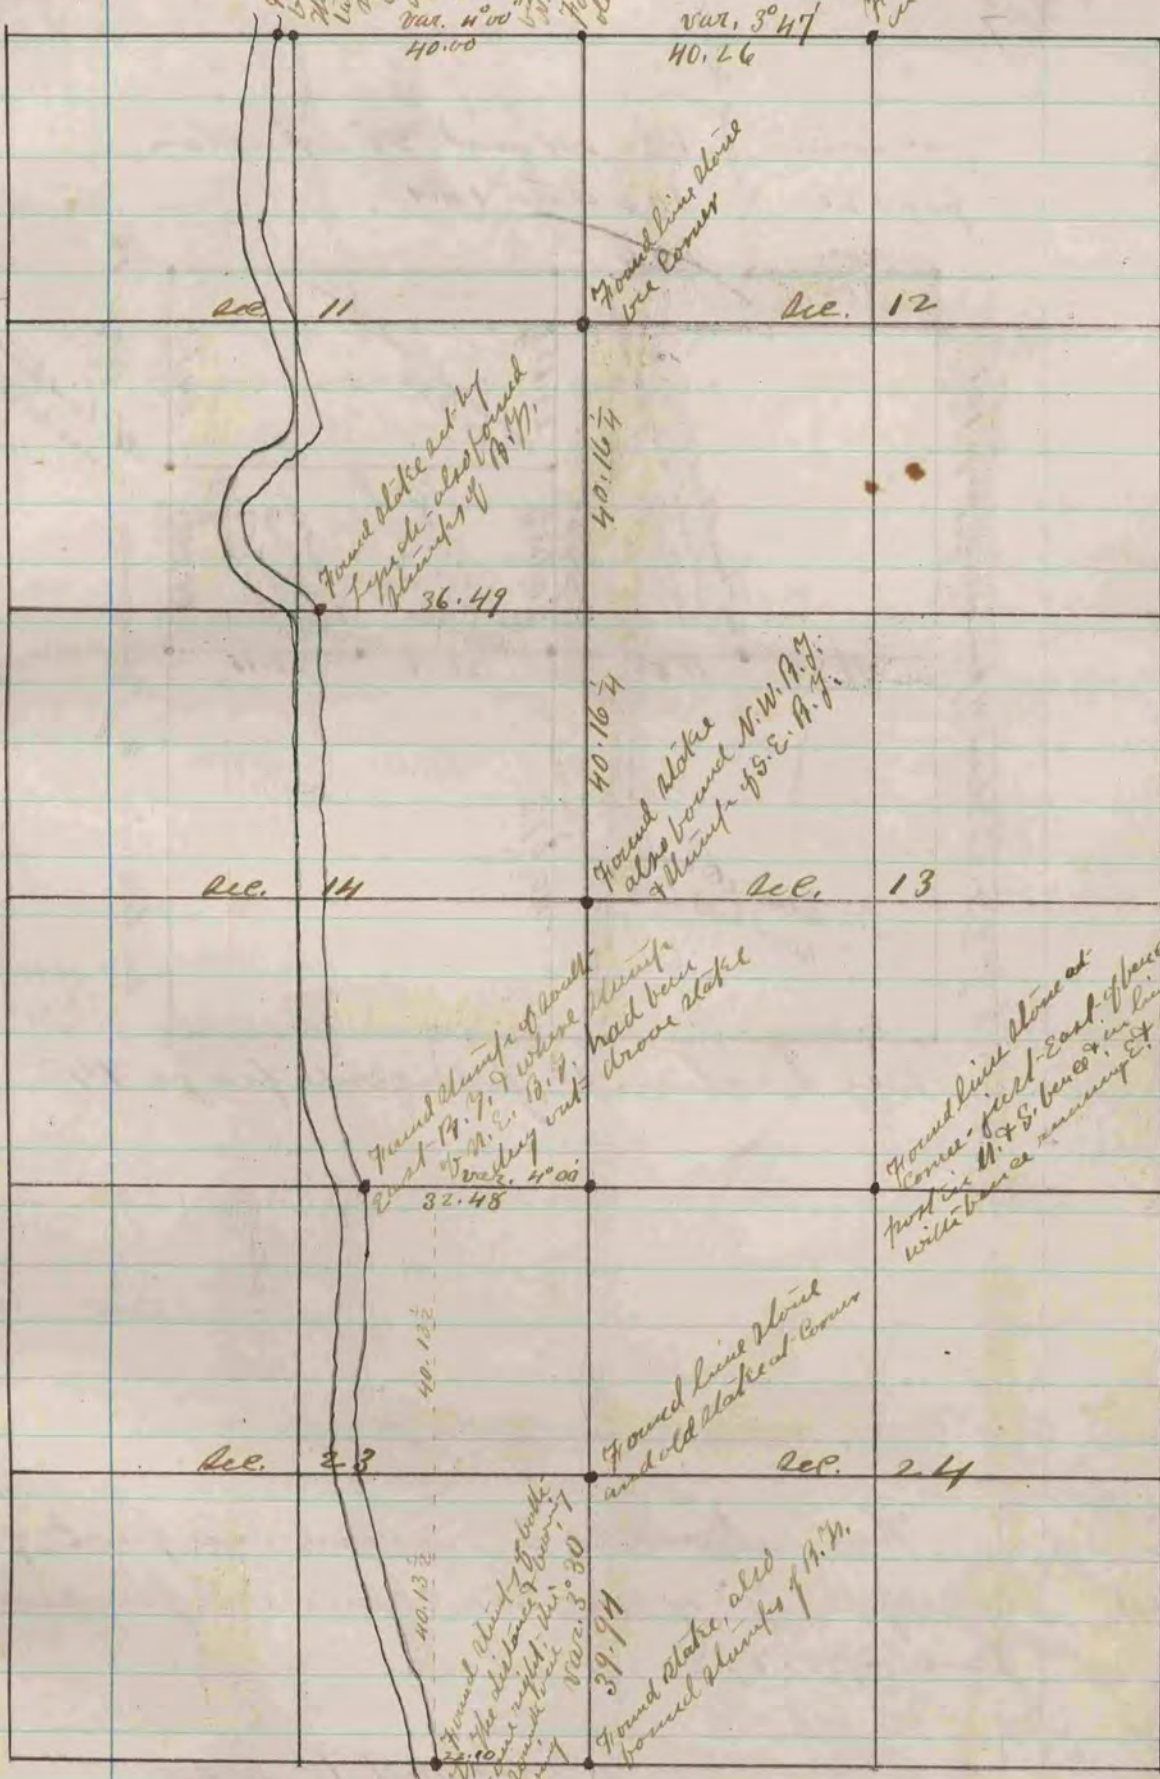 var. 4°00'
40.00
var. 3°47'
40.26
Found lime stone
at Corner
Sec 11
Sec. 12
Found stake set by
also found
stumps of B.T.
40.16¼
36.49
40.16¼
Found stake
also found N.W. B.T.
& stump of S.E. B.T.
Sec. 14
Sec. 13
Found stump of south
east B.T. & where stump
of N.E. B.T. had been
dug out drove stake
var. 4°00'
32.48
Found lime stone at
corner just East of fence
post in N. & S. fence & in line
with fence running E &
40.13½
Found lime stone
and old stake at Corner
Sec. 23
Sec. 24
40.13½
Found stumps of both
The distance & bearing
var. 3°30'
39.94
Found stake, also
found stumps of B.T.